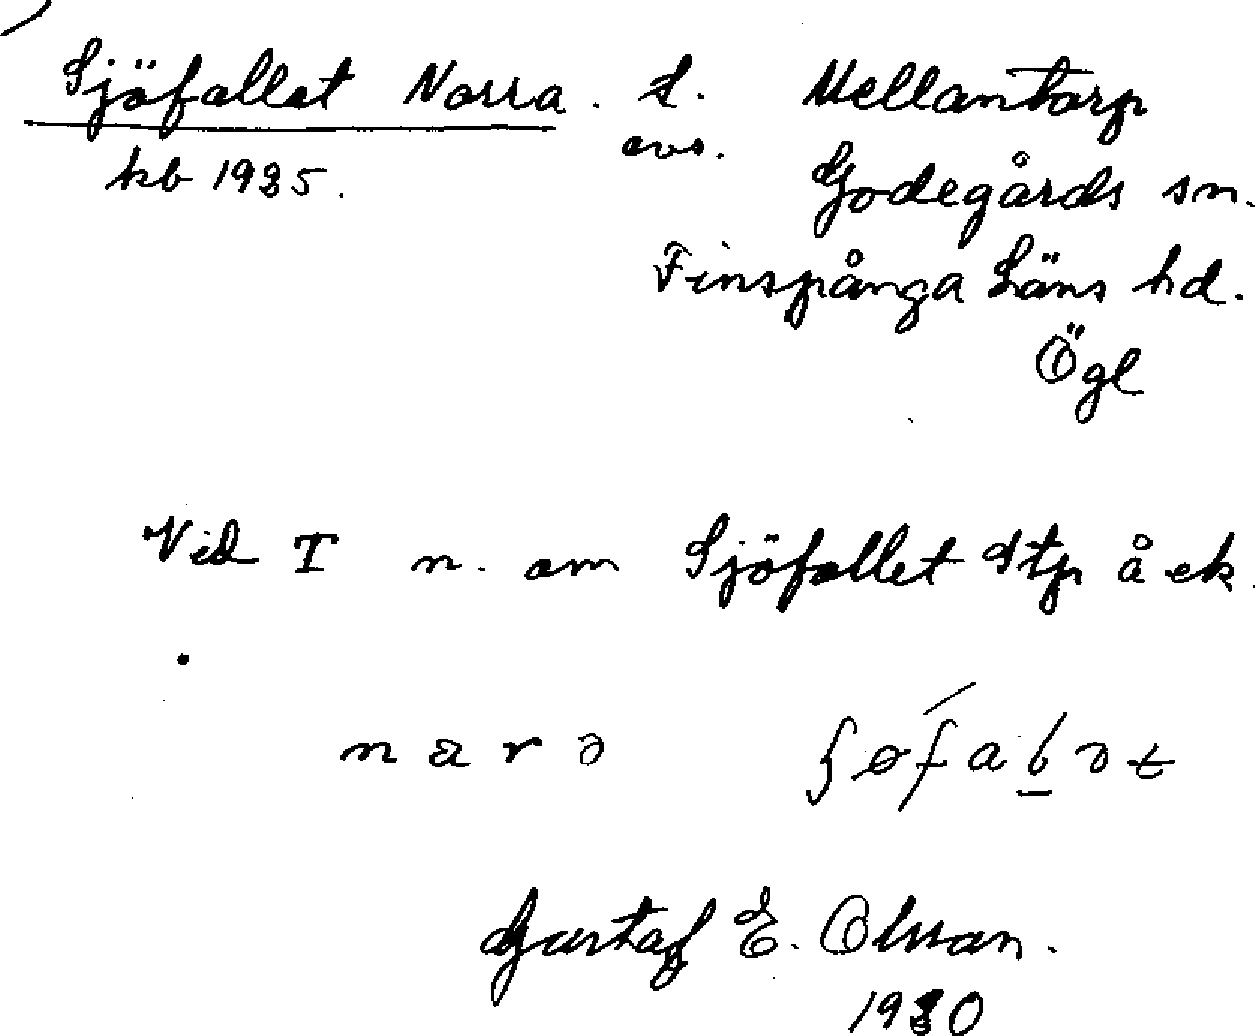 Sjöfallet Norra. L. Mellantorp
avs.
kb 1935. Godegårds sn.
Finspånga Läns hd.
Ögl
Vid I n. om Sjöfallet Stp å ek.
Gustaf E. Olsson.
1930